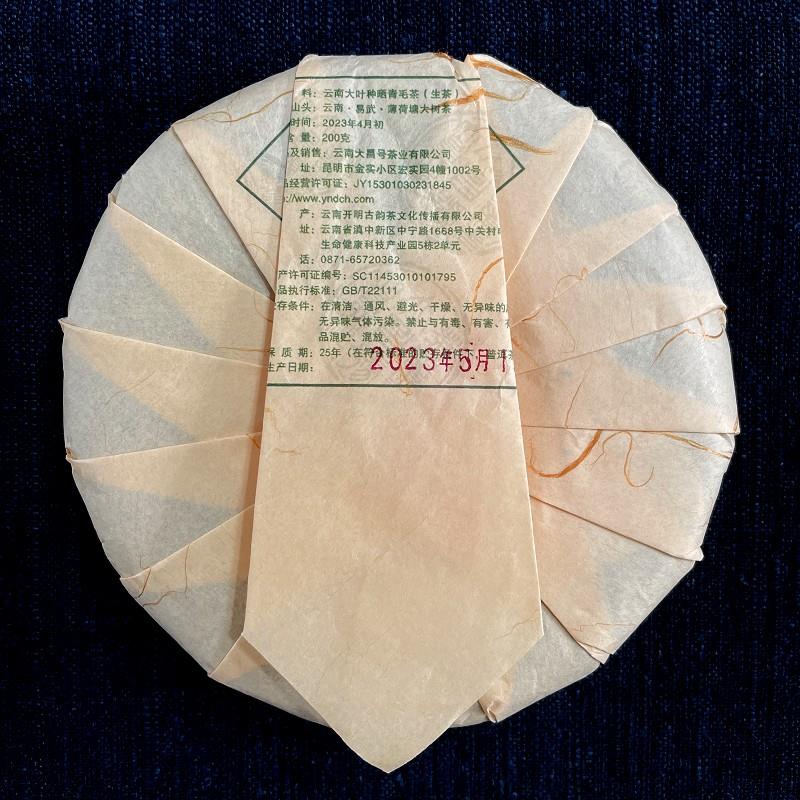 料：云南大叶种晒青毛茶（生茶）
山头：云南·易武·薄荷塘大树茶
时间：2023年4月初
含 量：200克
及销售：云南大昌号茶业有限公司
址：昆明市金实小区宏实园4幢1002号
品经营许可证：JY15301030231845
://www.yndch.com
产：云南开明古韵茶文化传播有限公司
址：云南省滇中新区中宁路1668号中关村
生命健康科技产业园5栋2单元
话：0871-65720362
产许可证编号：SC11453010101795
品执行标准：GB/T22111
存条件：在清洁、通风、避光、干燥、无异味的
无异味气体污染。禁止与有毒、有害、
品混贮、混放。
保 质 期：25年（在符合标准的贮存条件下，普洱茶
生产日期：
2023年5月1